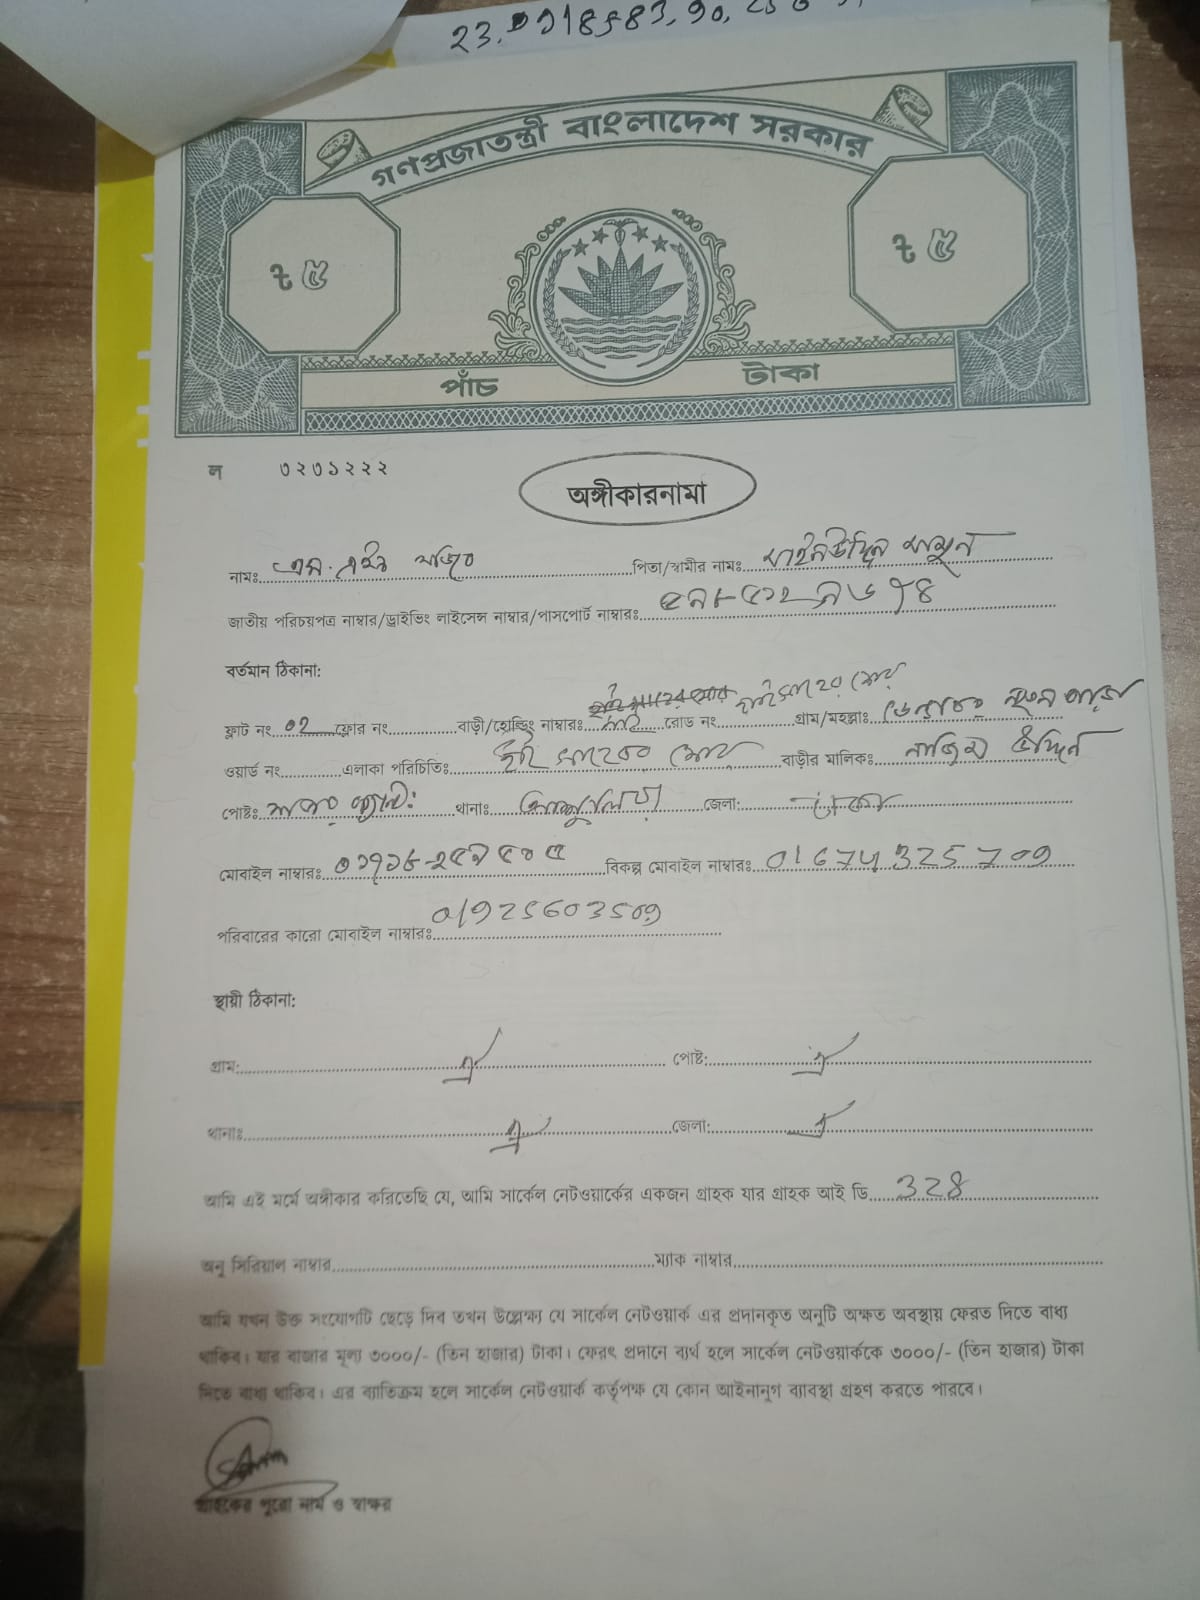 গণপ্রজাতন্ত্রী বাংলাদেশ সরকার
৳ ৫ ৳ ৫
পাঁচ টাকা
ল ৩২৩১২২২
অঙ্গীকারনামা
নামঃ পিতা/স্বামীর নামঃ মাইনউদ্দিন মামুন
জাতীয় পরিচয়পত্র নাম্বার/ড্রাইভিং লাইসেন্স নাম্বার/পাসপোর্ট নাম্বারঃ
বর্তমান ঠিকানা:
ফ্লাট নং ০২ ফ্লোর নং বাড়ী/হোল্ডিং নাম্বারঃ রোড নং গ্রাম/মহল্লাঃ
ওয়ার্ড নং এলাকা পরিচিতিঃ বাড়ীর মালিকঃ নাজিম উদ্দিন
পোষ্টঃ থানাঃ জেলা: ঢাকা
মোবাইল নাম্বারঃ বিকল্প মোবাইল নাম্বারঃ 01674325709
পরিবারের কারো মোবাইল নাম্বারঃ 01925603509
স্থায়ী ঠিকানা:
গ্রাম: ঐ পোষ্ট: ঐ
থানাঃ ঐ জেলা: ঐ
আমি এই মর্মে অঙ্গীকার করিতেছি যে, আমি সার্কেল নেটওয়ার্কের একজন গ্রাহক যার গ্রাহক আই ডি 328
অনু সিরিয়াল নাম্বার ম্যাক নাম্বার
আমি যখন উক্ত সংযোগটি ছেড়ে দিব তখন উল্লেক্ষ্য যে সার্কেল নেটওয়ার্ক এর প্রদানকৃত অনুটি অক্ষত অবস্থায় ফেরত দিতে বাধ্য
থাকিব। যার বাজার মূল্য ৩০০০/- (তিন হাজার) টাকা। ফেরৎ প্রদানে ব্যর্থ হলে সার্কেল নেটওয়ার্ককে ৩০০০/- (তিন হাজার) টাকা
দিতে বাধ্য থাকিব। এর ব্যাতিক্রম হলে সার্কেল নেটওয়ার্ক কর্তৃপক্ষ যে কোন আইনানুগ ব্যাবস্থা গ্রহণ করতে পারবে।
গ্রাহকের পুরো নাম ও স্বাক্ষর